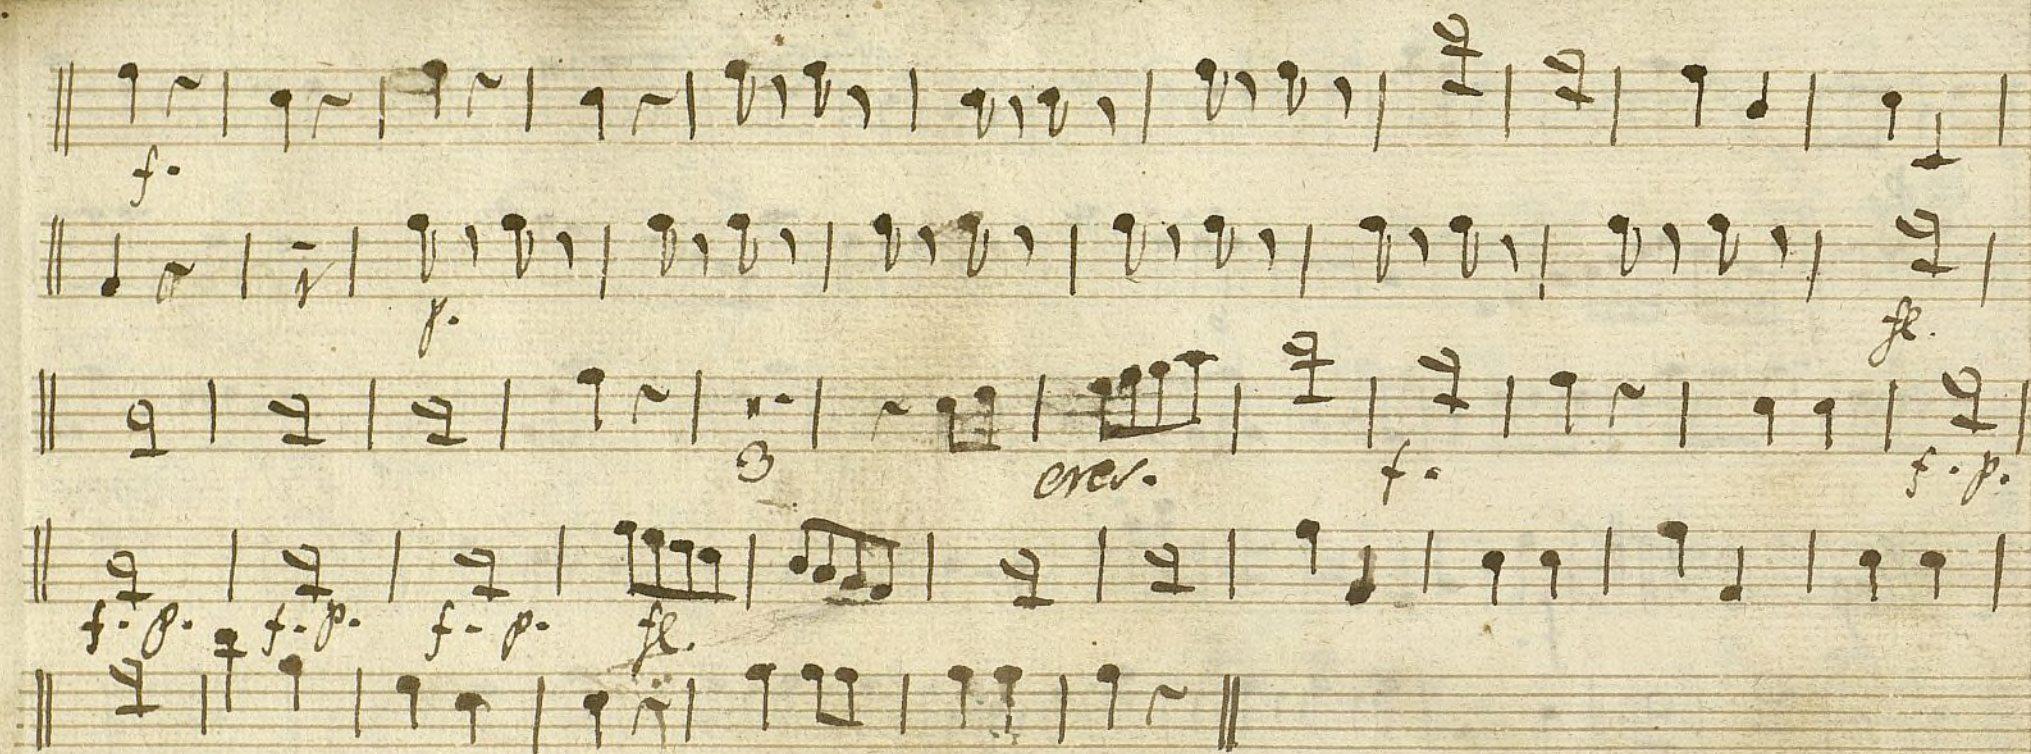 f.
p. fe.
3 cres. f. f. p.
f. p. f. p. f. p. fe.